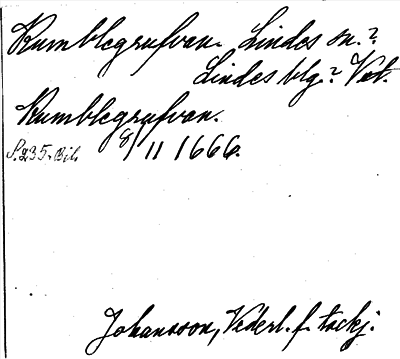 Rumblegrufvan. Lindes sn.?
Lindes blg.? Vstl.
Rumblegrufvan.
S. 235. Bil. 8/11 1666.
Johansson, Vederl. f. tackj.